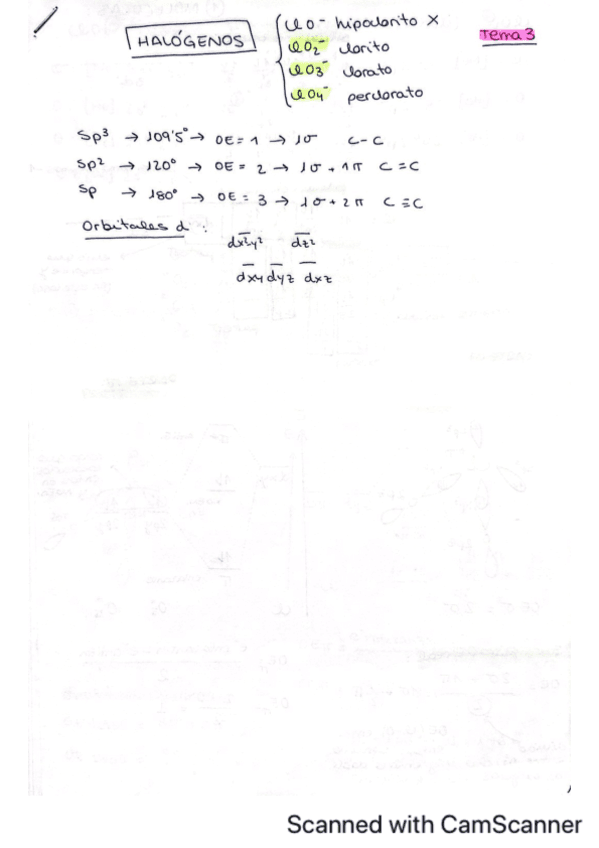 HALÓGENOS
ClO⁻ hipoclorito X
ClO2⁻ clorito
ClO3⁻ clorato
ClO4⁻ perclorato
Tema 3
Sp³ → 109'5° → OE = 1 → 1σ C-C
Sp² → 120° → OE = 2 → 1σ + 1π C=C
Sp → 180° → OE = 3 → 1σ + 2π C≡C
Orbitales d :
dx²y² dz²
dxy dyz dxz
Scanned with CamScanner